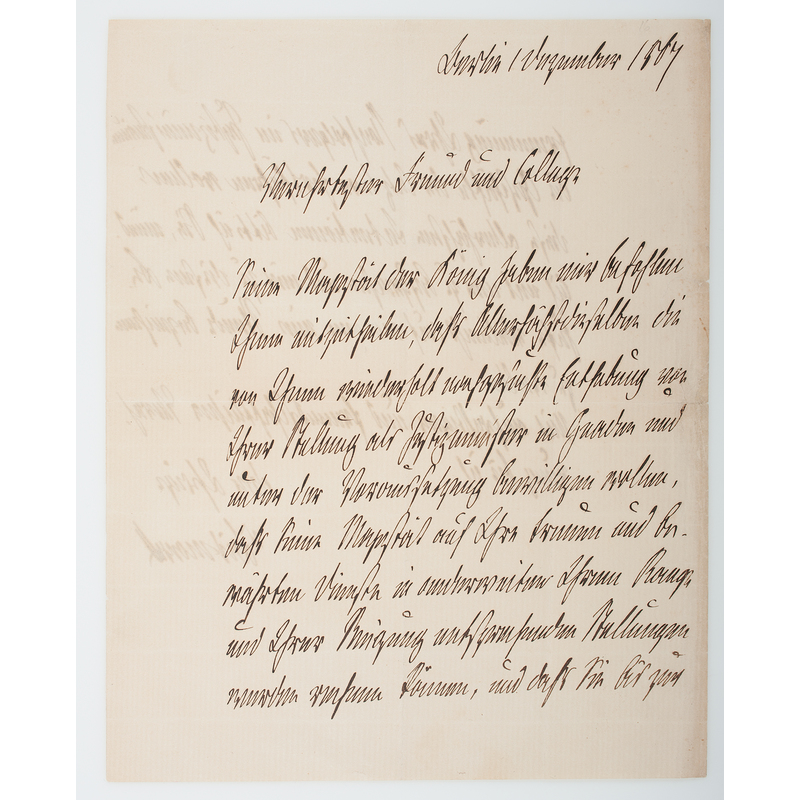 Berlin 1 Dezember 1867
Verehrtester Freund und College
Seine Majestät der König haben mir befohlen
Ihnen mitzutheilen, daß Allerhöchstdieselben die
von Ihnen wiederholt nachgesuchte Enthebung von
Ihrer Stellung als Justizminister in Gnaden und
unter der Voraussetzung bewilligen wollen,
daß Seine Majestät auf Ihre treuen und be-
währten Dienste in anderweiten Ihrem Range
und Ihrer Neigung entsprechenden Stellungen
werden rechnen können, und daß Sie bis zur